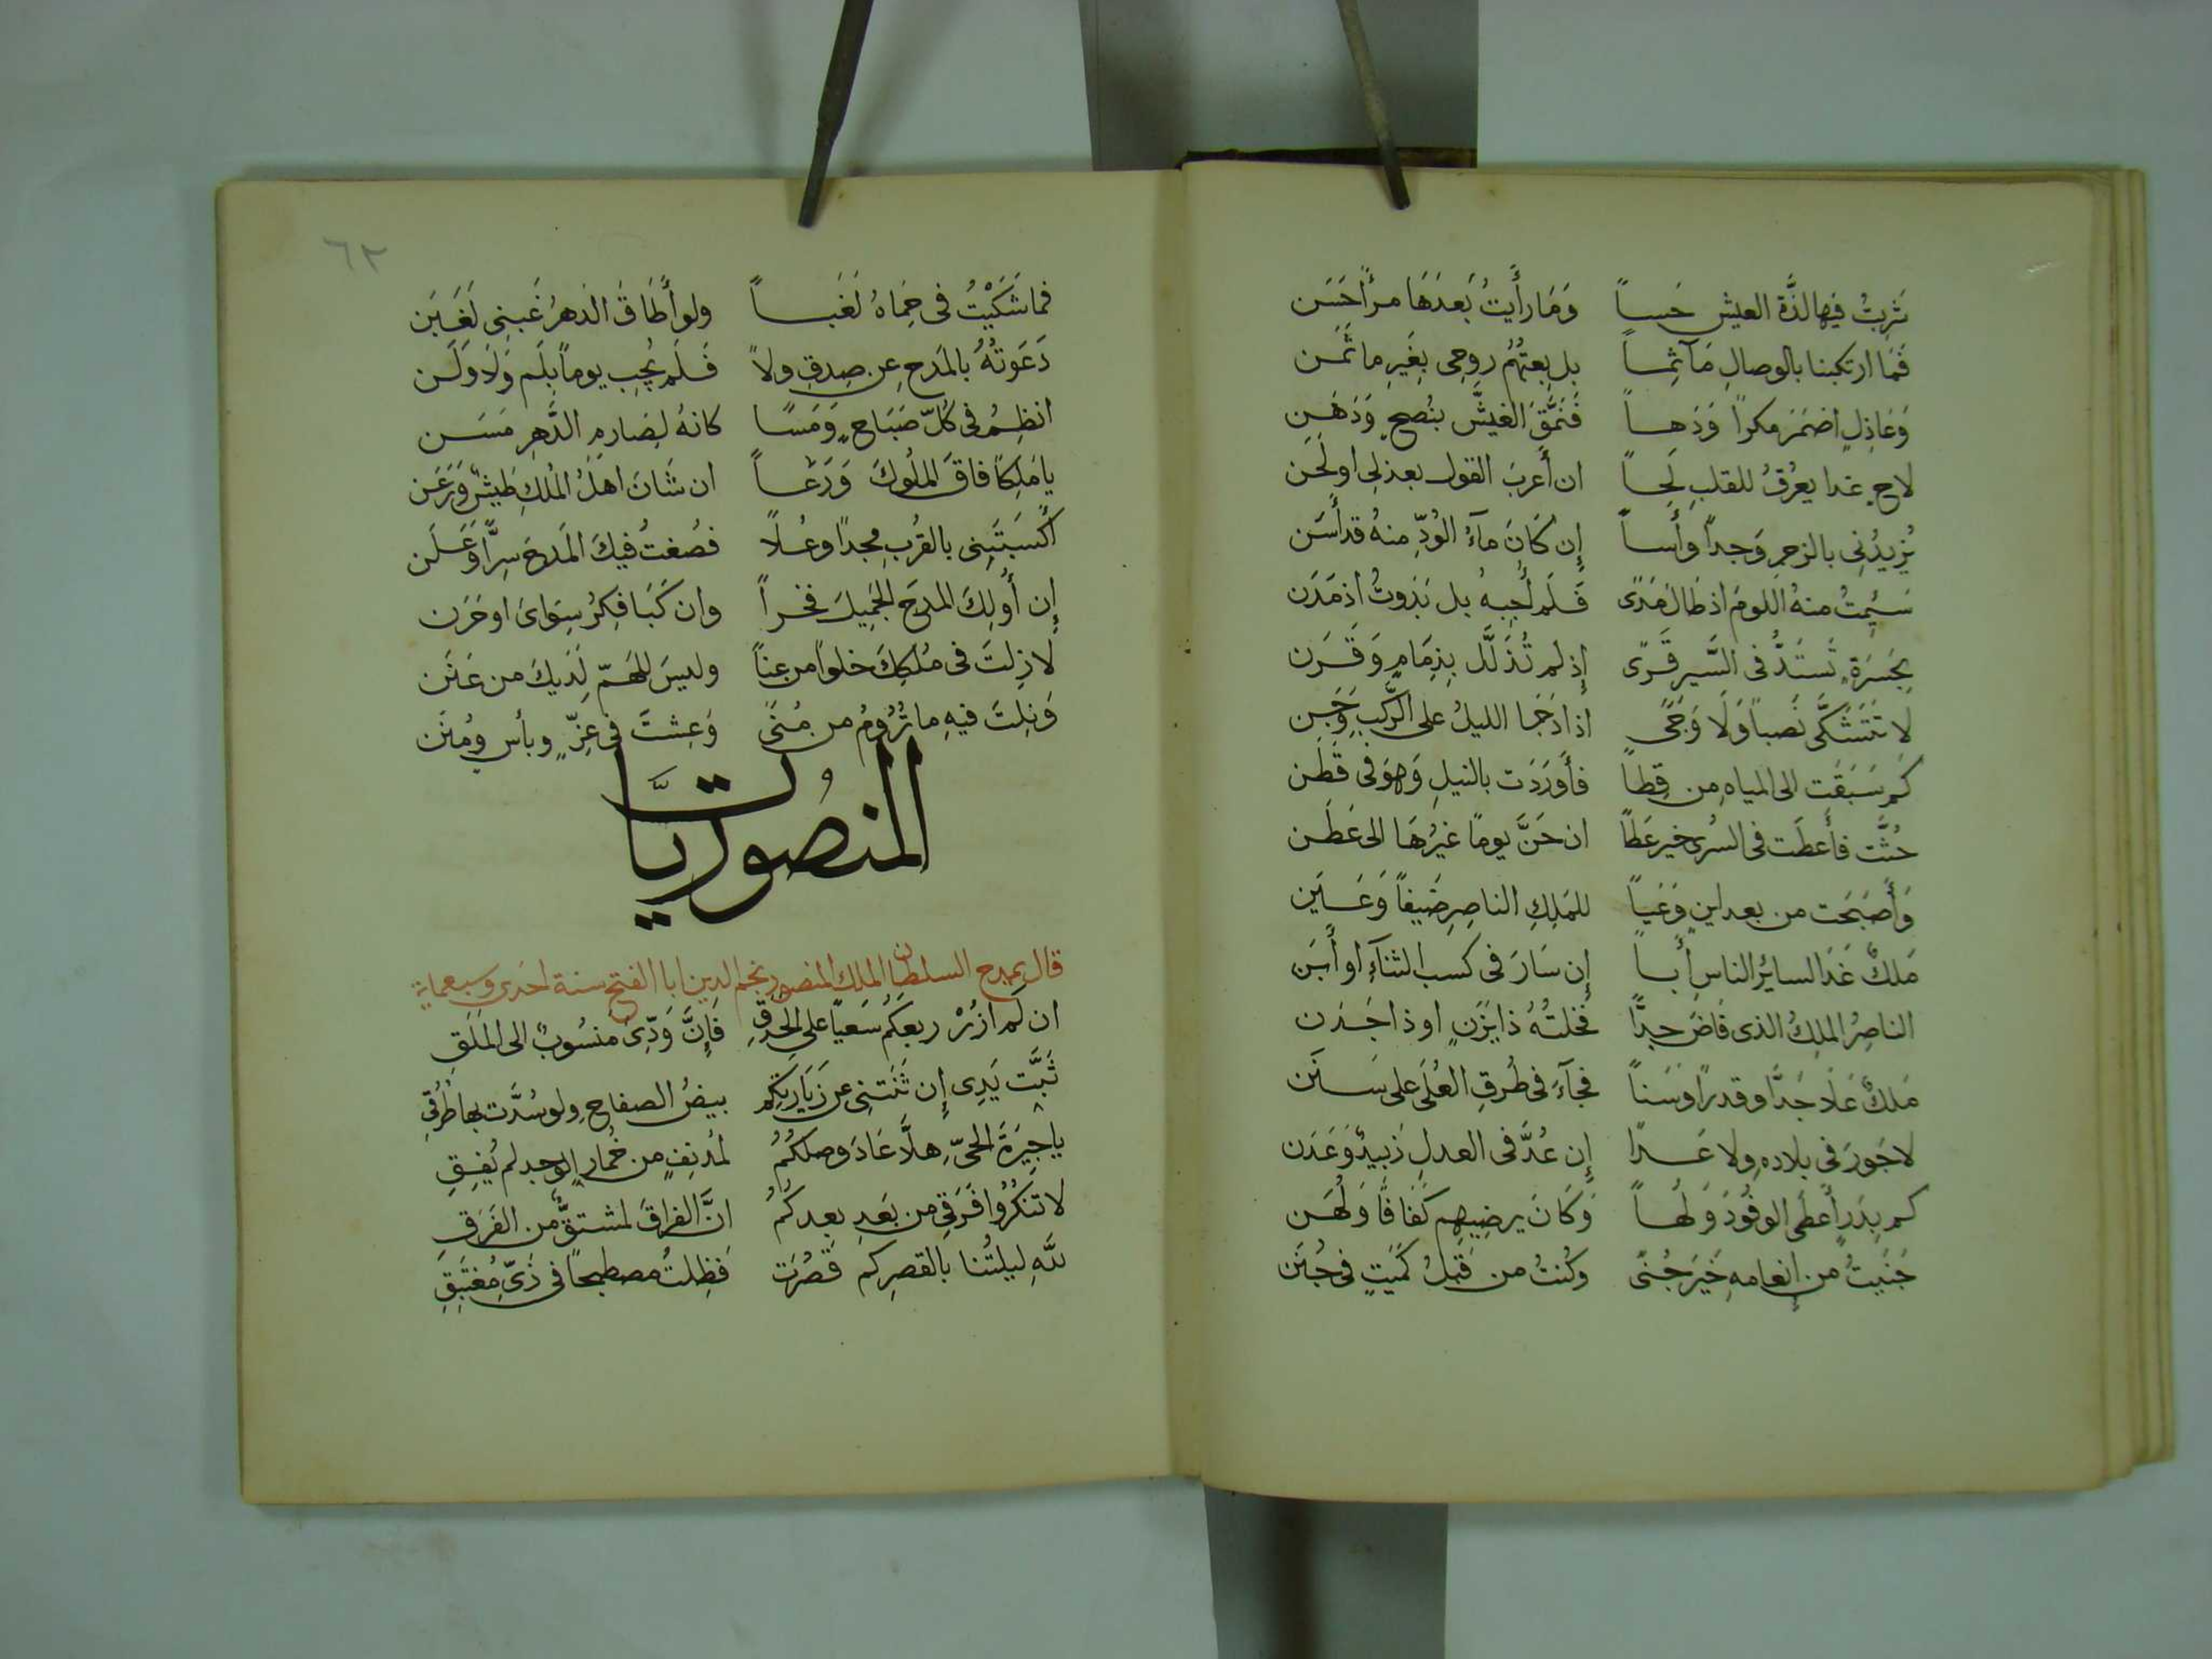 شَرِبتُ فيها لذَّة العيش حَساً   وَمَا رأَيتُ بَعدَهَا مرأً حَسَن
فَمَا ارتكبنا بالوصالِ مَآثِمـاً   بل بِعتُهُم روحى بِغَيرِ ما ثَمَـن
وَعَاذِلٍ اضمَرَ مكراً وَدَهـاً   فَنَمَّقَ الغِيشَّ بنُصحٍ وَدَهَـن
لاحٍ غدا يعرُقُ للقلبِ لَحِـاً   ان أَعربَ القول بعذلى او لَحَن
يُزِيدُنِى بالزجرِ وَجداً وأَسـاً   إِن كَانَ مآءُ الوُدِّ منهُ قد أَسَن
سَئِمتُ منهُ اللومَ اذ طَالَ مَدًى   فَلَم أُجِبهُ بل نَذَوتُ اذ مَدَن
بِجَسرَةٍ تَستَدُّ فى السَّير قَرًى   إِذ لم تُذَلَّل بِزِمَامٍ وَقَرَن
لا تَتَشَكَّى نَصباً وَلَا وَجًى   اذا دَجَا الليلُ على الرَّكبِ وَجَن
كَم سَبَقَت الى المياهِ من قِطاً   فأَورَدَت بالنيلِ وَهوَ فى قَطَن
حُثَّت فأَعطَت فى السُرى خير عَطاً   ان حَنَّ يوماً غيرُهَا الى عَطَـن
وَأَصبَحَت من بعد اينٍ وَعَيَاً   للمَلِكِ الناصِرِ ضَيفاً وَعَـيَن
مَلكٌ غَدَا لسائِرِ الناسِ أَبـاً   إِن سَارَ فى كسب الثنآءِ او أَبَن
الناصِرُ الملِكُ الذى فَاضَ جدًا   فخلتُهُ ذا يَزَنٍ او ذا جَـدَن
مَلكٌ عَلَا جَدًّا وقدراً وَسَناً   فجآءَ فى طُرقِ العُلَى على سَـنَن
لا جَورَ فى بلادهِ ولا عَـدًا   إِن عُدَّ فى العدلِ زَبيدٌ وَعَدَن
كم بِدَرٍ أَعطَى الوفُودَ وَلُهـاً   وَكَانَ يرضِيهِم كَفَافًا وَلُهَـن
جَنَيتُ من إِنعامهِ خَيرَ جُنًى   وكُنتُ من قَبلُ كَمَيتٍ فى جُبَن
٦٢
فما شَكَيْتُ فى حِمَاهُ لَغَبـاً   ولو أَطَاقَ الدَهرُ غَبنِى لَغَـبَن
دَعَوتُهُ بالمَدحِ عن صِدقِ ولاً   فَـلَم يُجِبِ يوماً بِلَم وَلَا وَلَـن
انظِمُ فى كُلّ صَبَاحٍ وَمَسَـا   كانهُ لِصَارِمِ الدَّهرِ مَسَـن
يا مَلِكاً فاقَ المُلُوكَ وَرَعـاً   ان شَانَ اهلَ المُلكِ طَيشٌ وَرَعَن
أَكسَبتَنِى بالقُربِ مجداً وعُـلًا   فصُغتُ فيكَ المَدحَ سِرًّا وَعَـلَن
إِن أُولِكَ المدحَ الجَمِيلَ فخـراً   وان كَبَا فِكرُ سِوَاىَ او حَرَن
لا زِلتَ فى مُلكِكَ خلواً من عناً   وليسَ للهَـمّ لَدَيكَ من عَـنَن
وَنِلتَ فيهِ ما تَرُومُ من مُنًى   وَعِشتَ فى عِزٍّ وبأسٍ ومُنَن
المنصُوريَّات
قال يمدح السلطان الملك المنصور نجم الدين ابا الفتح سنة احدى وسبعماية
ان لَم ازُرْ ربعَكُم سَعياً على الحَدَقِ   فَإِنَّ وَدِّىَ منسُوبٌ الى المَلَقِ
تَبَّت يَدِى إِن ثَنَتنِى عن زَيَارَتِكُم   بيضُ الصفاحِ ولو سُدَّت بها طُرُقِى
يا جِيرَةَ الحَىِّ هلَّا عَادَ وصلكُمُ   لمُدنِفٍ من خُمارِ الوجد لم يُفِـقِ
لا تنكُرُوا فَرَقِى من بَعدِ بعدكُمُ   انَّ الفراقَ لمشتقٌّ من الفَرَقِ
للَّهِ ليلتُنا بالقصرِ كم قَصُرَت   فَظِلتُ مصطبحاً فى زَىِّ مُغتَبِقِ